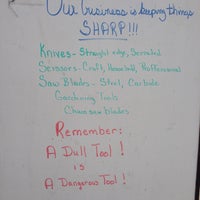 Our business is keeping things
SHARP!!!
Knives - Straight edge, Serrated
Scissors - Craft, Household, Proffessional
Saw Blades - Steel, Carbide
Gardening Tools
Chainsaw blades
Remember:
A Dull Tool!
is
A Dangerous Tool!